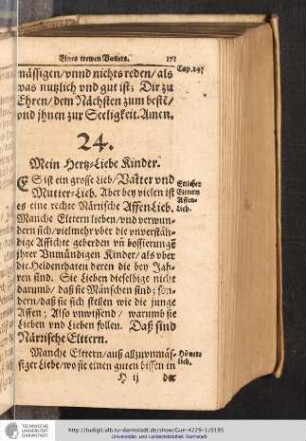 Eines trewen Vatters. 171
mässigen/ vnnd nichts reden/ als Cap. 24.
was nutzlich vnd gut ist; Dir zu
Ehren/ dem Nächsten zum beste/
vnd jhnen zur Seeligkeit. Amen.
24.
Mein Hertz-Liebe Kinder.
ES ist ein grosse Lieb/ Vatter vnd Etlicher
Mutter-Lieb. Aber bey vielen ist Eltern
es eine rechte Närrische Affen-Lieb. Affen-
Manche Elltern lieben/ vnd verwun- Lieb.
dern sich/ vielmehr vber die vnverstän-
dige Affichte geberden vñ bossierungē
jhrer Vnmündigen Kinder/ als vber
die Heldenthaten deren die bey Jah-
ren sind. Sie Lieben dieselbige nicht
darumb/ daß sie Mänschen sind; son-
dern/ daß sie sich stellen wie die junge
Affen; Also vnwissend/ warumb sie
Lieben vnd Lieben sollen. Daß sind
Närische Elltern.
Manche Elltern/ auß allzuvnmäs-
siger Liebe/ wo sie einen guten bissen in lieb.
H ij der
TECHNISCHE
UNIVERSITÄT
DARMSTADT
http://tudigit.ulb.tu-darmstadt.de/show/Gue-4229-1/0195
Universitäts- und Landesbibliothek Darmstadt